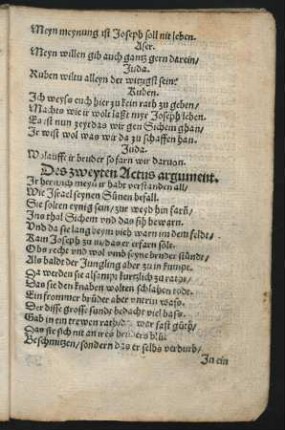 Meyn meynung ist Joseph soll nit leben.
Aser.
Meyn willen gib auch gantz gern darein/
Juda.
Ruben wiltu alleyn der witzigst sein?
Ruben.
Ich weyß euch hier zu kein rath zu geben/
Machts wie ir wolt laßt nur Joseph leben.
Es ist nun zeyt das wir gen Sichem ghan/
Ir wist wol was wir da zu schaffen han.
Juda.
Wolauff ir brüder so farn wir darvon.
Des zweyten Actus argument.
Ir herrn ich meyn ir habt verstanden all/
Wie Israel seynen Sünen befall.
Sie solten eynig sein/ zur weyd hin farn/
Ins thal Sichem vnd das sih bewarn.
Vnd da sie lang beym vieh warn im dem felde/
Kam Joseph zu in das er erfarn solt.
Obs recht vnd wol vmb seyne brüder stündt/
Als balde der Jüngling aber zu in kumpt.
Da werden sie alsampt kürtzlich zu rate/
Das sie den knaben wolten schlahen todt.
Ein frommer brüder aber vnterin was/
Der disse grosse sünde bedacht viel bass.
Gab in ein trewen rath/ war fast gütt/
Das sie sich nit an ires bruders blüt
Beschmitzen/ sondern das er selbs verdurb/
In ein